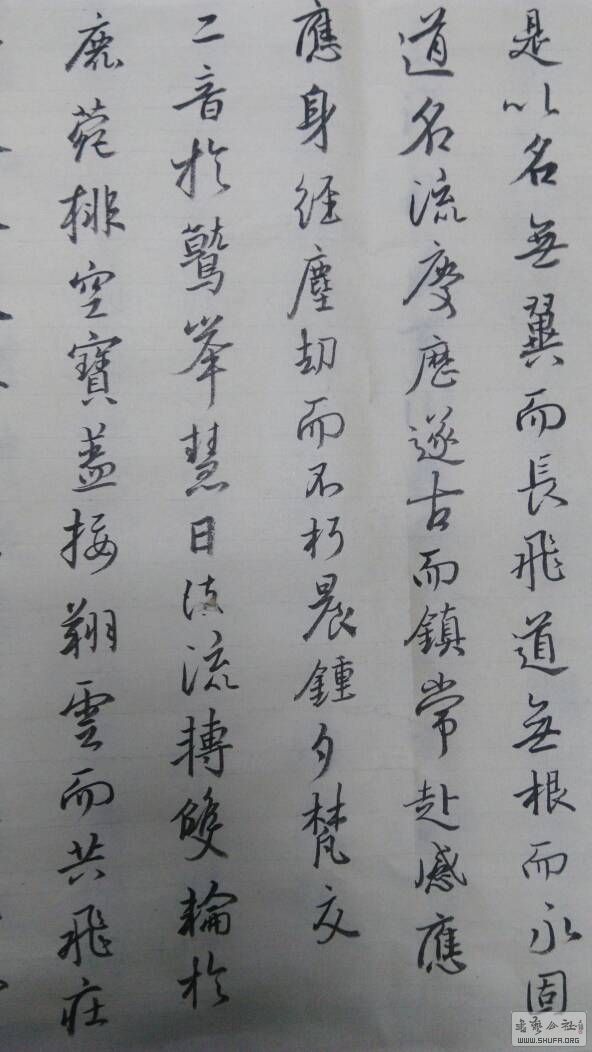 是以名無翼而長飛道無根而永固
道名流慶歷遂古而鎮常赴感應
應身經塵劫而不朽晨鍾夕梵交
二音於鷲峯慧日法流轉雙輪於
鹿菀排空寶蓋接翔雲而共飛莊
书艺公社
WWW.SHUFA.ORG